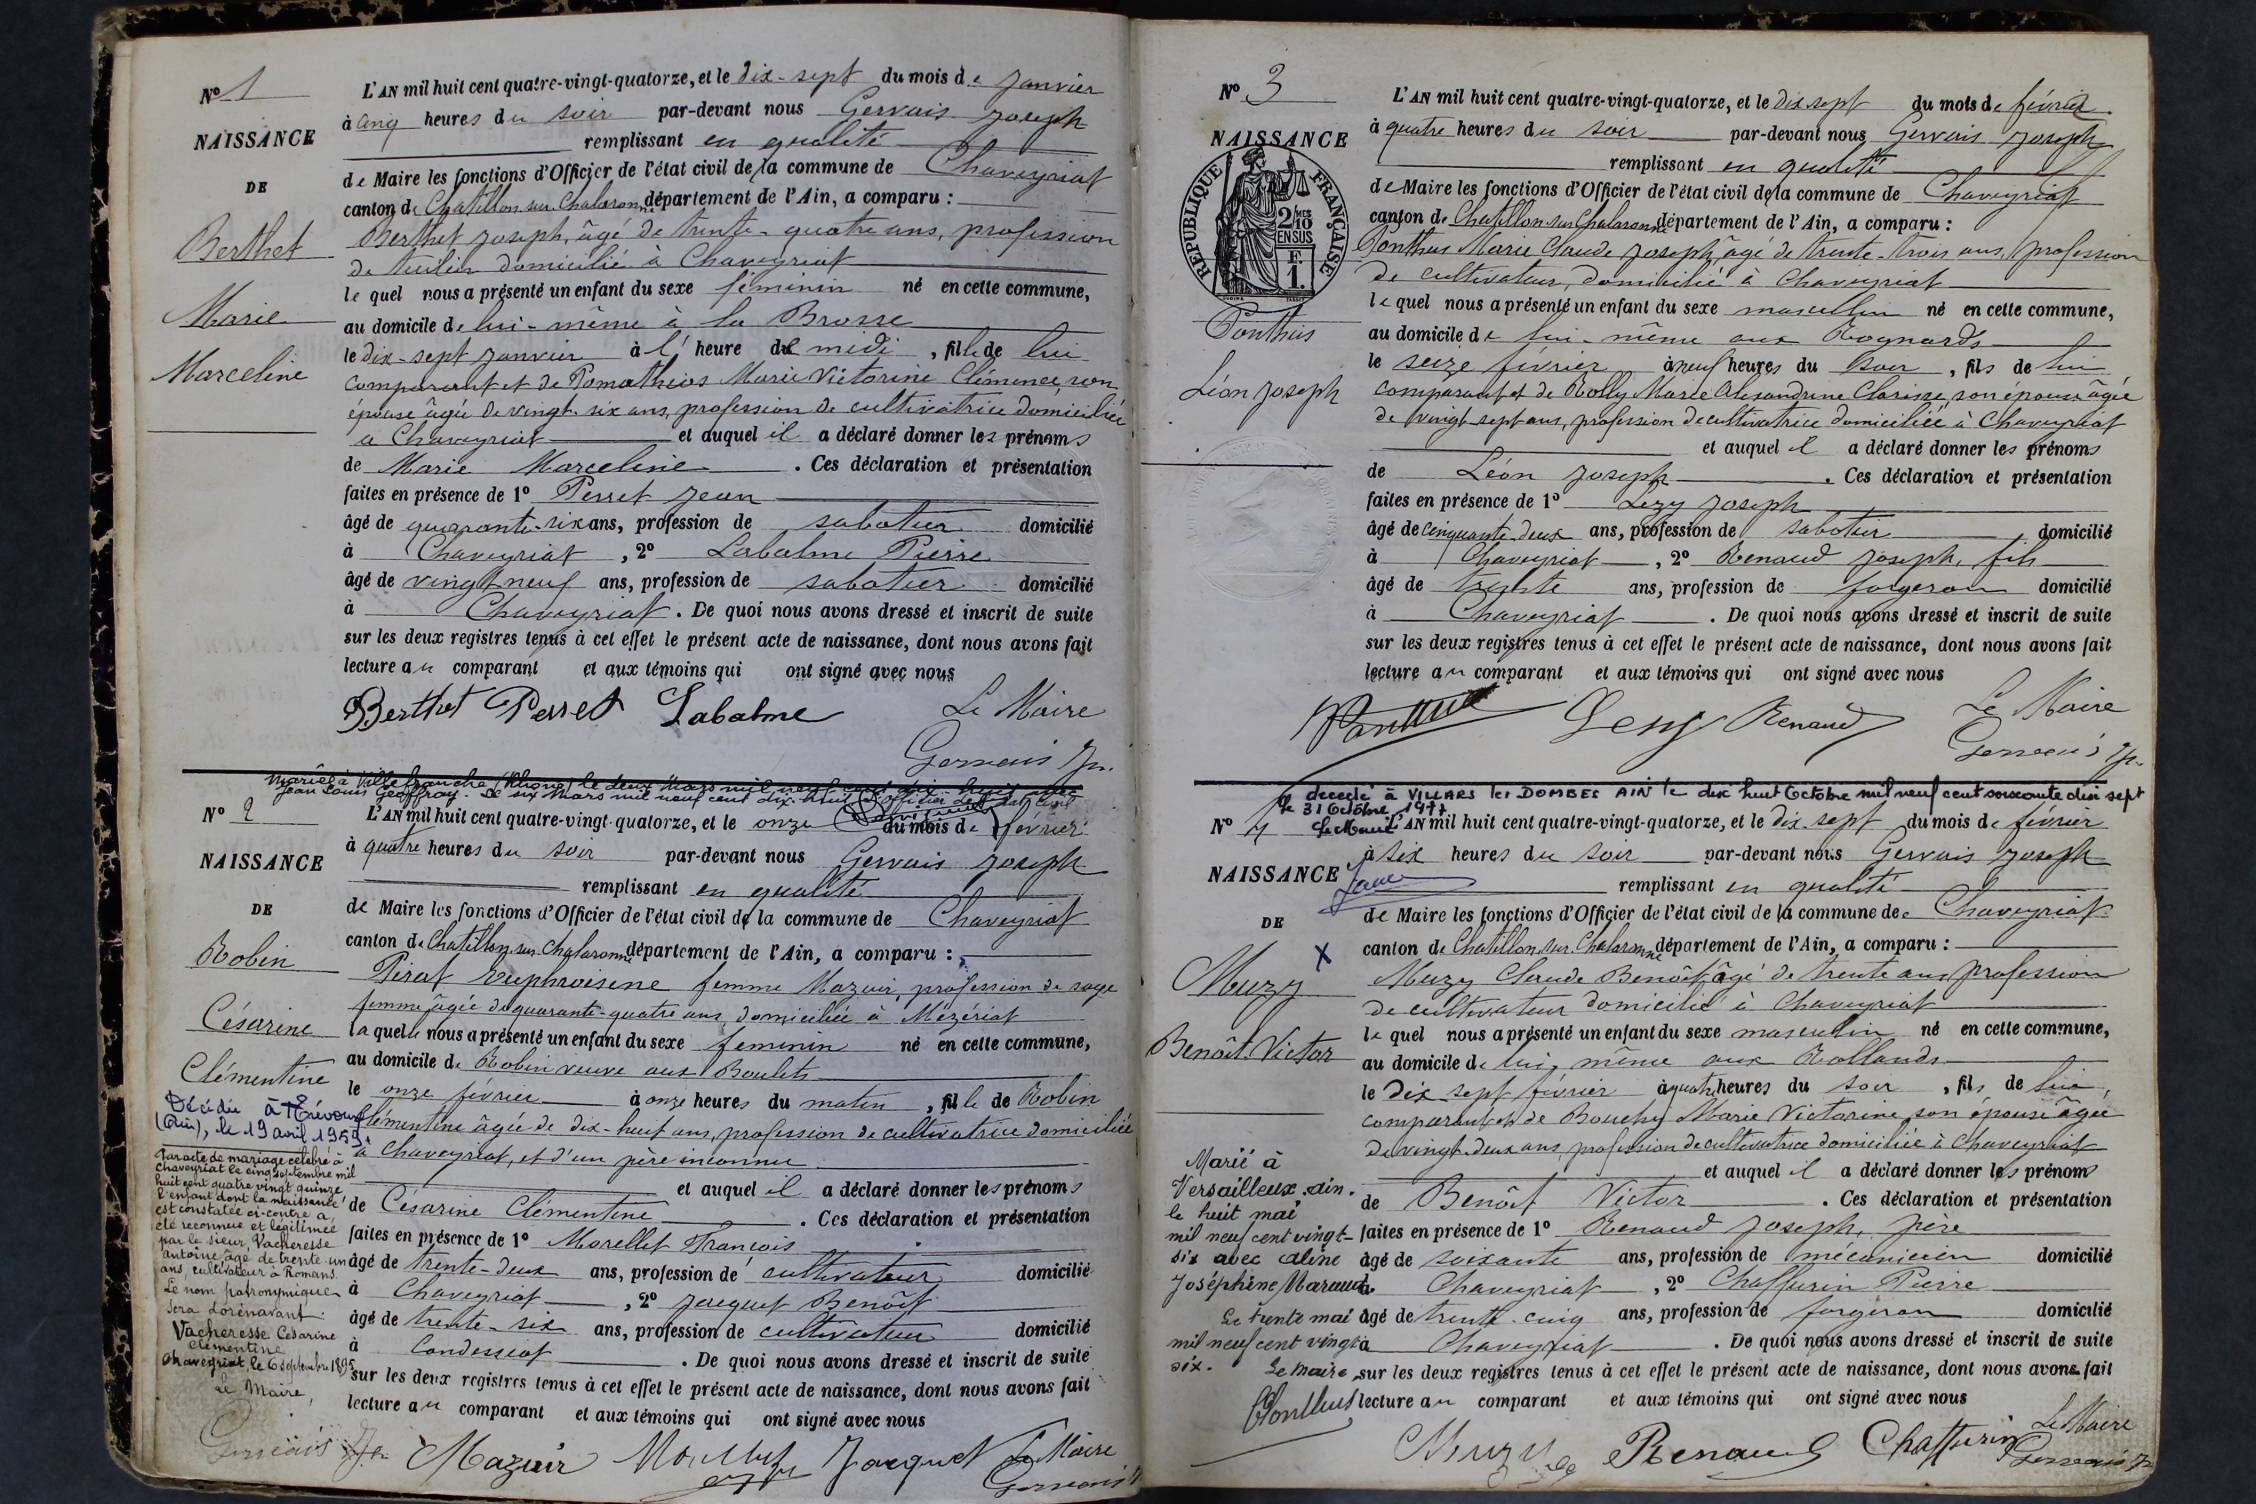 N° 1
NAISSANCE
DE
Berthet
Marie
Marceline
L'AN mil huit cent quatre-vingt-quatorze, et le dix-sept du mois de janvier
à cinq heures du soir par-devant nous Gervais Joseph
remplissant en qualité
de Maire les fonctions d'Officier de l'état civil de la commune de Chaveyriat
canton de Chatillon sur Chalaronne département de l'Ain, a comparu :
Berthet Joseph, âgé de trente-quatre ans, profession
de tuilier domicilié à Chaveyriat
le quel nous a présenté un enfant du sexe féminin né en cette commune,
au domicile de lui-même à la Brosse
le dix-sept janvier à l'heure de midi, fille de lui
comparant et de Pomathios Marie Victorine Clémence, son
épouse âgée de vingt-six ans, profession de cultivatrice domiciliée
a Chaveyriat et auquel il a déclaré donner les prénoms
de Marie Marceline. Ces déclaration et présentation
faites en présence de 1° Perret Jean
âgé de quarante-six ans, profession de sabotier domicilié
à Chaveyriat, 2° Labalme Pierre
âgé de vingt-neuf ans, profession de sabotier domicilié
à Chaveyriat. De quoi nous avons dressé et inscrit de suite
sur les deux registres tenus à cet effet le présent acte de naissance, dont nous avons fait
lecture au comparant et aux témoins qui ont signé avec nous
Berthet Perret Labalme Le Maire
Gervais Jh.
Mariée à Villefranche (Rhône) le deux Mars mil neuf cent dix-huit avec
Jean Louis Geoffray. Le six Mars mil neuf cent dix-huit L'officier de l'état civil
N° 2
NAISSANCE
DE
Robin
Césarine
Clémentine
Décédée à Trévoux
(Ain), le 19 avril 1959.
Par acte de mariage célébré à
Chaveyriat le cinq septembre mil
huit cent quatre vingt quinze
l'enfant dont la naissance
est constatée ci-contre a
été reconnue et légitimée
par le sieur Vacheresse
Antoine âgé de trente un
ans, cultivateur à Romans.
Le nom patronymique
sera dorénavant :
Vacheresse Césarine
Clémentine
Chaveyriat le 6 septembre 1895
Le Maire,
Gervais Jh.
L'AN mil huit cent quatre-vingt-quatorze, et le onze du mois de février
à quatre heures du soir par-devant nous Gervais Joseph
remplissant en qualité
de Maire les fonctions d'Officier de l'état civil de la commune de Chaveyriat
canton de Chatillon sur Chalaronne département de l'Ain, a comparu :
Pirat Euphroisine femme Mazuir, profession de sage
femme âgée de quarante-quatre ans, domiciliée à Mézériat
la quelle nous a présenté un enfant du sexe feminin né en cette commune,
au domicile de Robin veuve aux Boulets
le onze février à onze heures du matin, fille de Robin
Clémentine âgée de dix-huit ans, profession de cultivatrice domiciliée
à Chaveyriat, et d'un père inconnu
et auquel il a déclaré donner les prénoms
de Césarine Clémentine. Ces déclaration et présentation
faites en présence de 1° Morellet François
âgé de trente-deux ans, profession de cultivateur domicilié
à Chaveyriat, 2° Jacquet Benoît
âgé de trente-six ans, profession de cultivateur domicilié
à Condeissiat. De quoi nous avons dressé et inscrit de suite
sur les deux registres tenus à cet effet le présent acte de naissance, dont nous avons fait
lecture au comparant et aux témoins qui ont signé avec nous
Mazuir Morellet Jacquet Le Maire
Gervais Jh
N° 3
NAISSANCE
RÉPUBLIQUE FRANÇAISE
2/10 MES
EN SUS
F.
1.
Ponthus
Léon Joseph
L'AN mil huit cent quatre-vingt-quatorze, et le dix sept du mois de février
à quatre heures du soir par-devant nous Gervais Joseph
remplissant en qualité
de Maire les fonctions d'Officier de l'état civil de la commune de Chaveyriat
canton de Chatillon sur Chalaronne département de l'Ain, a comparu :
Ponthus Marie Claude Joseph, âgé de trente-trois ans, profession
de cultivateur, domicilié à Chaveyriat
le quel nous a présenté un enfant du sexe masculin né en cette commune,
au domicile de lui-même aux Rognards
le seize février à neuf heures du soir, fils de lui
comparant et de Rolly Marie Alexandrine Clarisse, son épouse âgée
de vingt-sept ans, profession de cultivatrice domiciliée à Chaveyriat
et auquel il a déclaré donner les prénoms
de Léon Joseph. Ces déclaration et présentation
faites en présence de 1° Lezy Joseph
âgé de cinquante-deux ans, profession de sabotier domicilié
à Chaveyriat, 2° Renaud Joseph, fils
âgé de trente ans, profession de forgeron domicilié
à Chaveyriat. De quoi nous avons dressé et inscrit de suite
sur les deux registres tenus à cet effet le présent acte de naissance, dont nous avons fait
lecture au comparant et aux témoins qui ont signé avec nous
Ponthus Lezy Renaud Le Maire
Gervais Jh.
decedé à VILLARS les DOMBES AIN le dix huit Octobre mil neuf cent soixante dix sept
le 31 Octobre 1977
Le Maire
N° 4
NAISSANCE
DE
X
Muzy
Benôit Victor
Marié à
Versailleux. Ain.
le huit mai
mil neuf cent vingt-
six avec Aline
Joséphine Maraud.
Le trente mai
mil neuf cent vingt
six. Le Maire,
Ponthus
L'AN mil huit cent quatre-vingt-quatorze, et le dix-sept du mois de février
à six heures du soir par-devant nous Gervais Joseph
remplissant en qualité
de Maire les fonctions d'Officier de l'état civil de la commune de Chaveyriat
canton de Chatillon sur Chalaronne département de l'Ain, a comparu :
Muzy Claude Benoît âgé de trente ans, profession
de cultivateur domicilié à Chaveyriat
le quel nous a présenté un enfant du sexe masculin né en cette commune,
au domicile de lui-même aux Rollands
le dix sept février à quatre heures du soir, fils de lui
comparant et de Bouchy Marie Victorine son épouse âgée
de vingt-deux ans, profession de cultivatrice domiciliée à Chaveyriat
et auquel il a déclaré donner les prénoms
de Benôit Victor. Ces déclaration et présentation
faites en présence de 1° Renaud Joseph, père
âgé de soixante ans, profession de mécanicien domicilié
à Chaveyriat, 2° Chaffurin Pierre
âgé de trente-cinq ans, profession de forgeron domicilié
à Chaveyriat. De quoi nous avons dressé et inscrit de suite
sur les deux registres tenus à cet effet le présent acte de naissance, dont nous avons fait
lecture au comparant et aux témoins qui ont signé avec nous
Muzy Renaud Chaffurin Le Maire
Gervais Jh